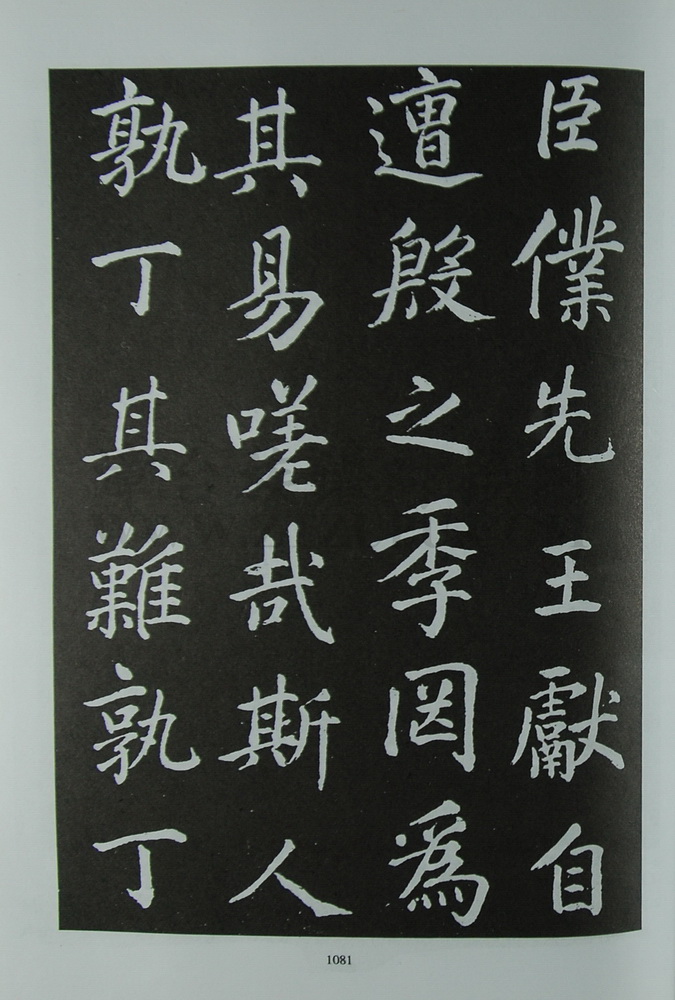 臣僕先王獻自
遭殷之季罔為
其易嗟哉斯人
孰丁其難孰丁
1081